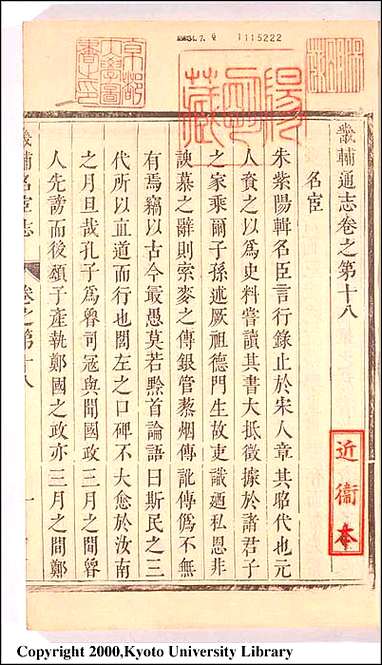 1115222
陽明藏
近衞本
畿輔通志卷之第十八
名宦
朱紫陽輯名臣言行錄止於宋人章其昭代也元
人資之以爲史料嘗讀其書大抵徵據於諸君子
之家乘爾子孫述厥祖德門生故吏識廼私恩非
諛慕之辭則索麥之傳銀管藜烟傳訛傳僞不無
有焉竊以古今最愚莫若黔首論語曰斯民之三
代所以直道而行也閭左之口碑不大愈於汝南
之月旦哉孔子爲魯司寇與聞國政三月之間魯
人先謗而後頌子產執鄭國之政亦三月之間鄭
畿輔名宦志
卷之第十八
一
Copyright 2000,Kyoto University Library